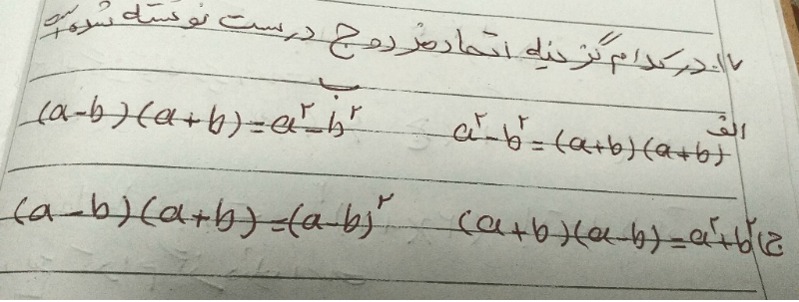 ۱۷. در کدام گزینه اتحاد مزدوج درست نوشته شده است
الف a²-b²=(a+b)(a+b) ب (a-b)(a+b)=a²-b²
ج) (a+b)(a-b)=a²+b² (a-b)(a+b)=(a-b)²